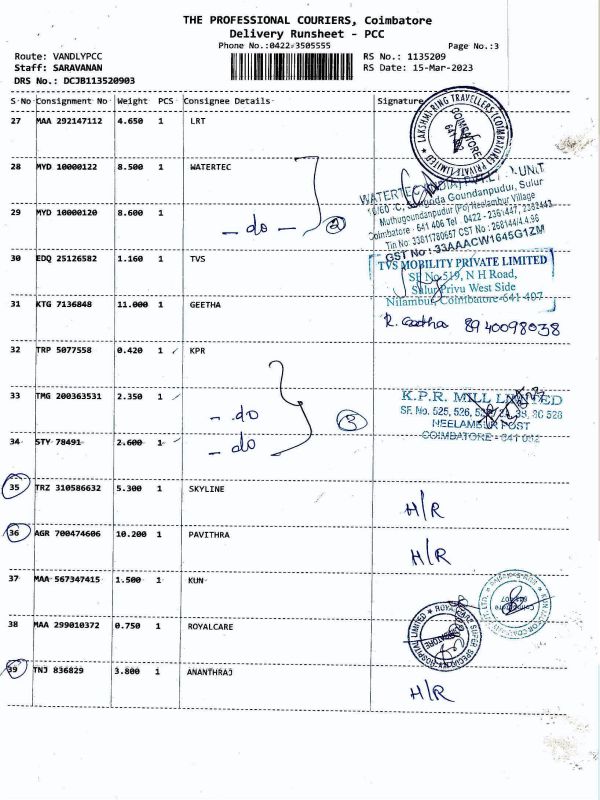 THE PROFESSIONAL COURIERS, Coimbatore
Delivery Runsheet - PCC
Phone No.:0422-3505555
Page No.:3
Route: VANDLYPCC
RS No.: 1135209
Staff: SARAVANAN
RS Date: 15-Mar-2023
DRS No.: DCJB113520903
S No Consignment No Weight PCS Consignee Details Signature
27 MAA 292147112 4.650 1 LRT
LAKSHMI RING TRAVELLERS (COIMBATORE) PRIVATE LIMITED
COIMBATORE
28 MYD 10000122 8.500 1 WATERTEC
UNIT
Goundanpudur, Sulur
Muthugoundanpudur (Po) Neelambur Village
29 MYD 10000120 8.600 1
- do - 2
Coimbatore - 641 406 Tel 0422 -
GST No : 33AAACW1645G1ZM
30 EDQ 25126582 1.160 1 TVS
TVS MOBILITY PRIVATE LIMITED
SF No 519, N H Road,
Sulur Privu West Side
Nilambur, Coimbatore-641 407
31 KTG 7136848 11.000 1 GEETHA
R. Geetha 8940098038
32 TRP 5077558 0.420 1 KPR
33 TMG 200363531 2.350 1
- do 3
K.P.R. MILL LIMITED
SF. No. 525, 526,
NEELAMBUR POST
34 STY 78491 2.600 1
- do
COIMBATORE - 641 062
35 TRZ 310586632 5.300 1 SKYLINE
H/R
36 AGR 700474606 10.200 1 PAVITHRA
H/R
37 MAA 567347415 1.500 1 KUN
38 MAA 299010372 0.750 1 ROYALCARE
39 TNJ 836829 3.800 1 ANANTHRAJ
H/R